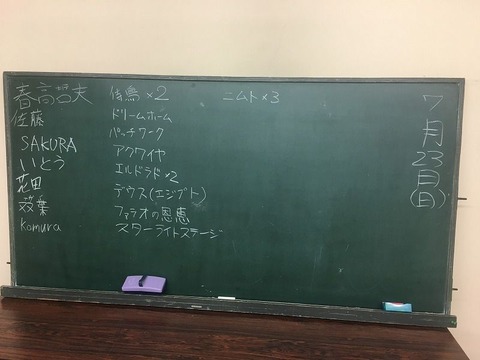 7月23日(日)
春高哲夫
佐藤
SAKURA
いとう
花田
双葉
komura
侍鳥×2
ドリームホーム
パッチワーク
アクワイヤ
エルドラド×2
デウス(エジプト)
ファラオの恩恵
スターライトステージ
ニムト×3